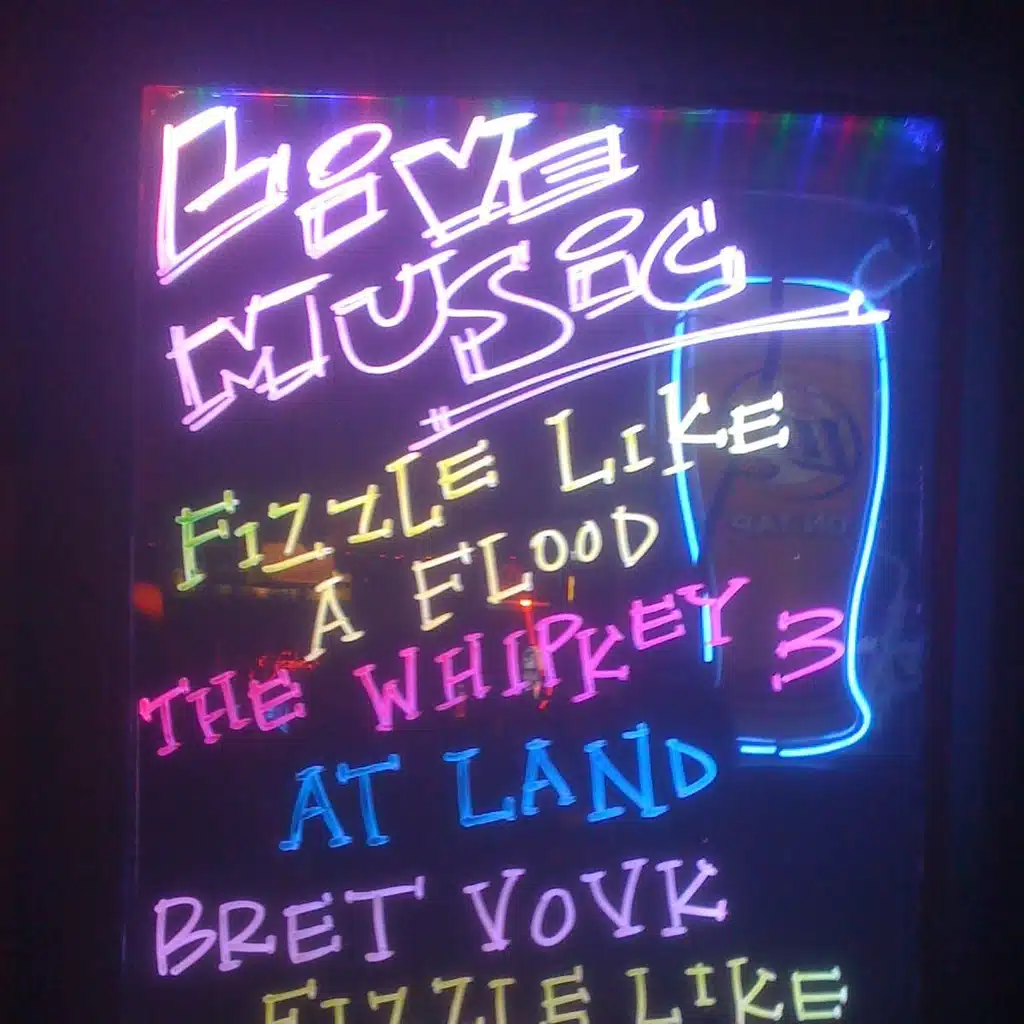 LiVE
MUSiC
FIZZLE LIKE
A FLOOD
THE WHIPKEY 3
AT LAND
BRET VOVK
FIZZLE LIKE